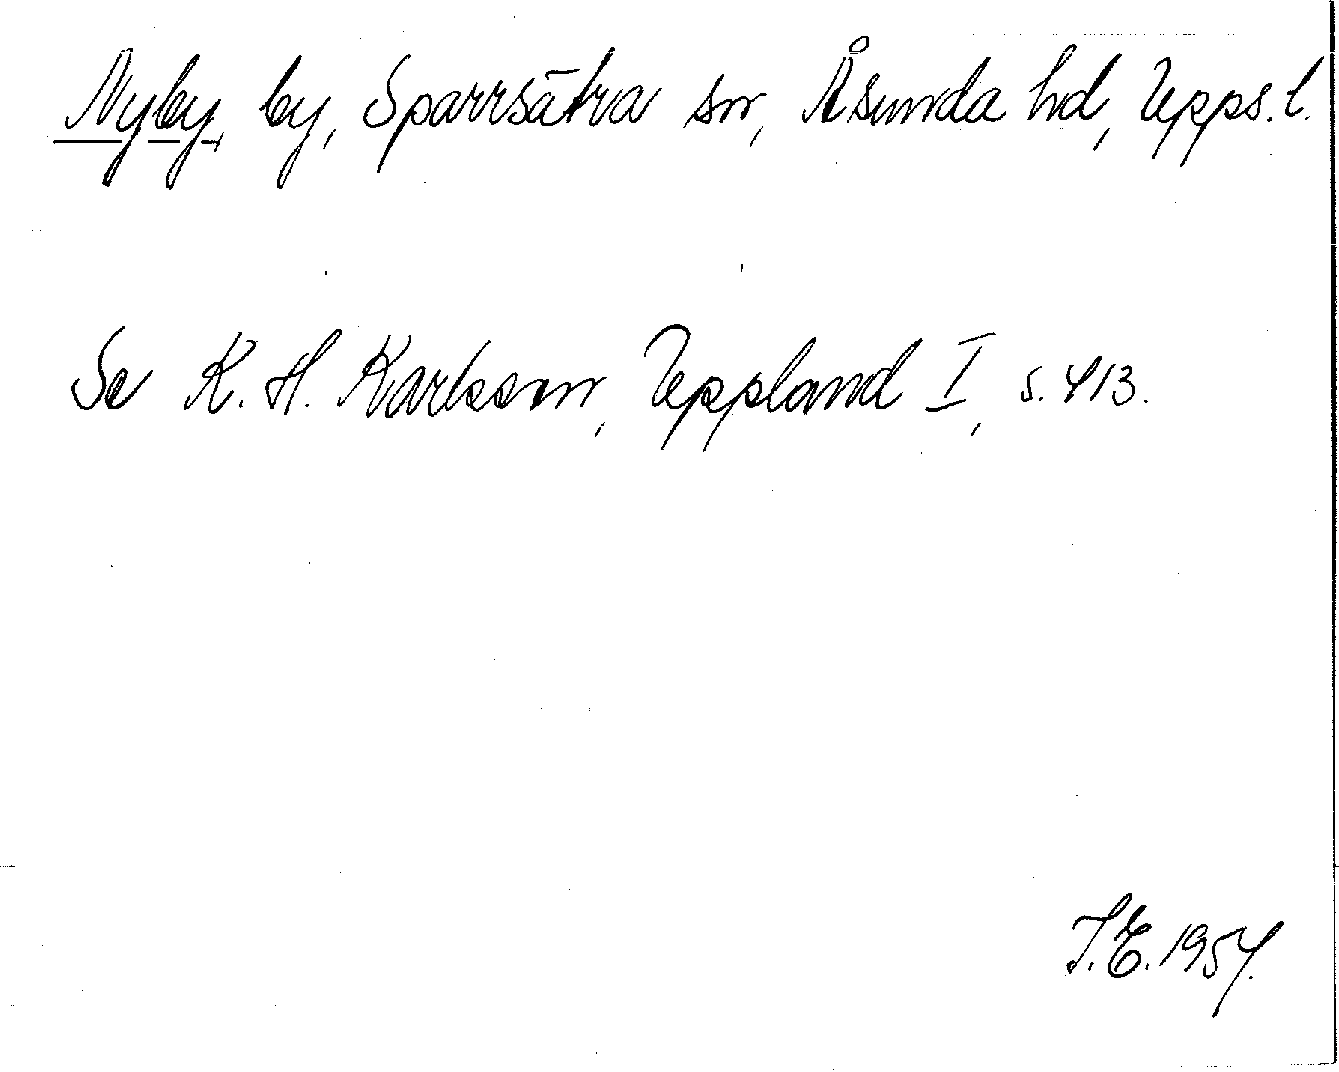 Nyby, by, Sparrsätra sn, Åsunda hd, Upps. l.
Se K. H. Karlsson, Uppland I, s. 413.
I. E. 1954.